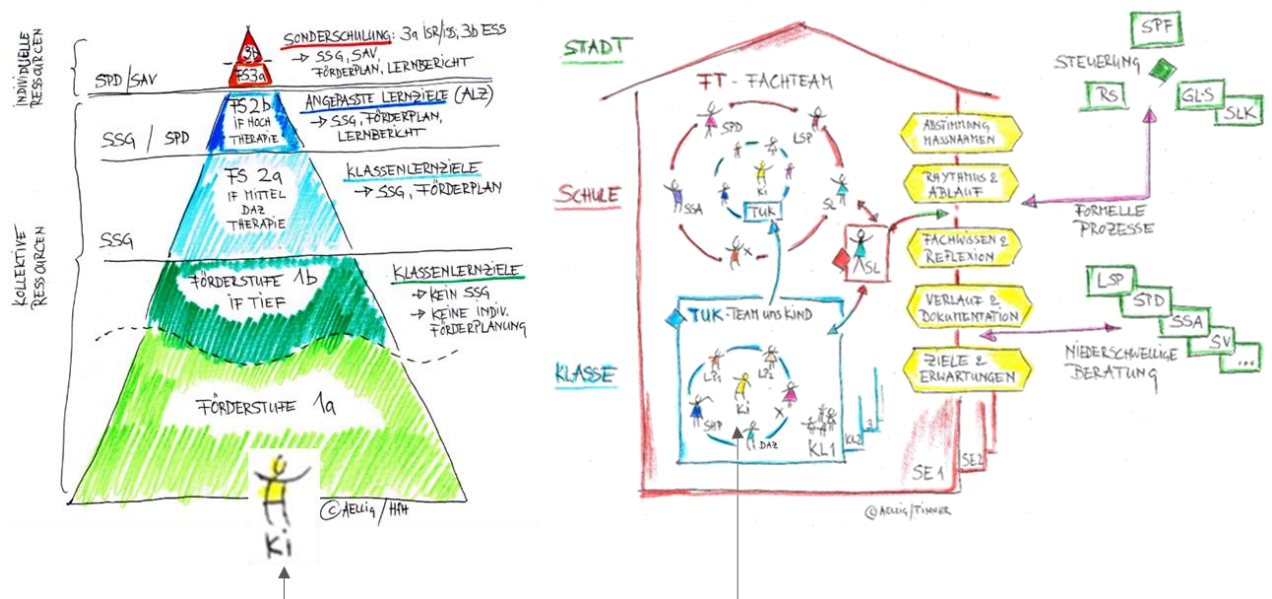 INDIVIDUELLE
RESSOURCEN
KOLLEKTIVE
RESSOURCEN
3b
FS3a
SONDERSCHULUNG: 3a ISR/ISS, 3b ESS
→ SSG, SAV,
FÖRDERPLAN, LERNBERICHT
SPD/SAV
FS2b
IF HOCH
THERAPIE
ANGEPASSTE LERNZIELE (ALZ)
→ SSG, FÖRDERPLAN,
LERNBERICHT
SSG / SPD
FS 2a
IF MITTEL
DAZ
THERAPIE
KLASSENLERNZIELE
→ SSG, FÖRDERPLAN
SSG
FÖRDERSTUFE 1b
IF TIEF
KLASSENLERNZIELE
→ KEIN SSG
→ KEINE INDIV.
FÖRDERPLANUNG
FÖRDERSTUFE 1a
Ki
© AELLIG/HfH
STADT
SCHULE
KLASSE
FT - FACHTEAM
SPD
LSP
SSA
Ki
SL
TUK
X
SL
TUK - TEAM UMS KIND
LP1
LP2
Ki
SHP
X
DAZ
KL1
KL2
3
SE1
SE2
ABSTIMMUNG
MASSNAHMEN
RHYTHMUS &
ABLAUF
FACHWISSEN &
REFLEXION
VERLAUF &
DOKUMENTATION
ZIELE &
ERWARTUNGEN
SPF
STEUERUNG
RS
GLS
SLK
FORMELLE
PROZESSE
LSP
SPD
SSA
SV
...
NIEDERSCHWELLIGE
BERATUNG
© AELLIG/TINNER